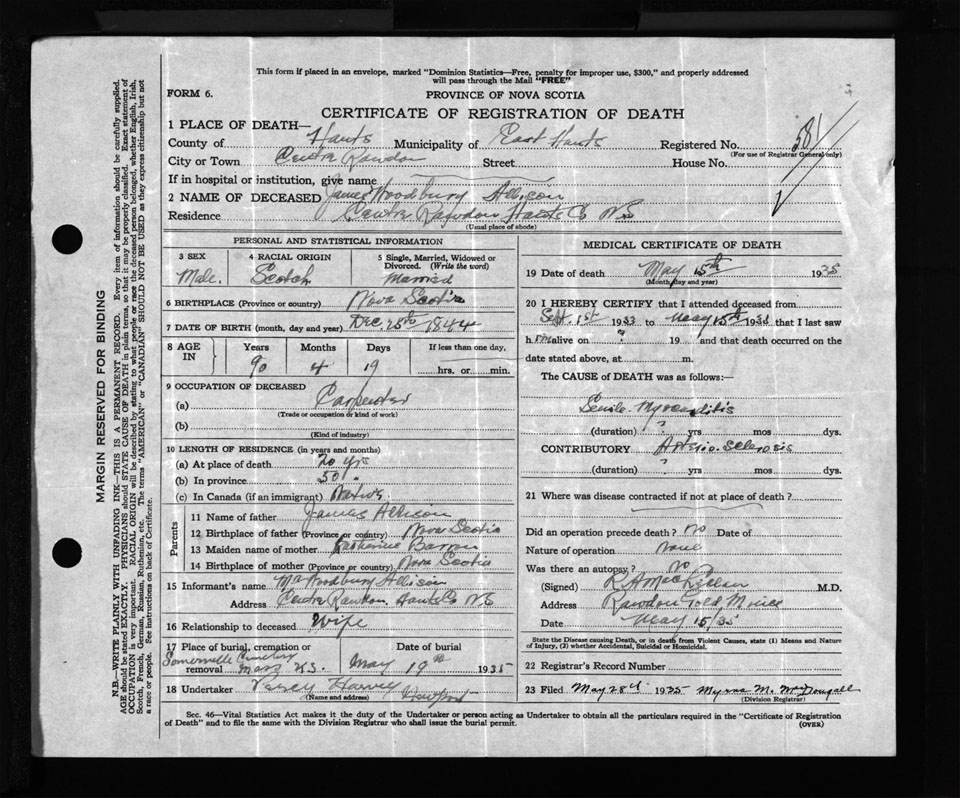 This form if placed in an envelope, marked "Dominion Statistics—Free, penalty for improper use, $300," and properly addressed
will pass through the Mail "FREE"
FORM 6.
PROVINCE OF NOVA SCOTIA
CERTIFICATE OF REGISTRATION OF DEATH
1 PLACE OF DEATH—
County of Hants Municipality of East Hants Registered No. 581
(For use of Registrar General only)
City or Town Centre Rawdon Street House No.
If in hospital or institution, give name
2 NAME OF DECEASED James Woodbury Allison
Residence Centre Rawdon Hants Co NS
(Usual place of abode)
PERSONAL AND STATISTICAL INFORMATION
3 SEX 4 RACIAL ORIGIN 5 Single, Married, Widowed or
Divorced. (Write the word)
Male. Scotch Married
6 BIRTHPLACE (Province or country) Nova Scotia
7 DATE OF BIRTH (month, day and year) Dec. 25th 1844
8 AGE IN Years Months Days If less than one day,
90 4 19 hrs. or min.
9 OCCUPATION OF DECEASED
(a) Carpenter
(Trade or occupation or kind of work)
(b)
(Kind of industry)
10 LENGTH OF RESIDENCE (in years and months)
(a) At place of death 20 yrs
(b) In province 50 "
(c) In Canada (if an immigrant) Native
Parents
11 Name of father James Allison
12 Birthplace of father (Province or country) Nova Scotia
13 Maiden name of mother Katherine
14 Birthplace of mother (Province or country) Nova Scotia
15 Informant's name Woodbury Allison
Address Centre Rawdon. Hants Co N.S
16 Relationship to deceased Wife
17 Place of burial, cremation or Date of burial
Somerville Cemetery
removal May 19th 1935
18 Undertaker Percy Harvey
(Name and address)
MEDICAL CERTIFICATE OF DEATH
19 Date of death May 15th 1935
(Month, day and year)
20 I HEREBY CERTIFY that I attended deceased from
Sept. 1st 1933 to May 15th 193 that I last saw
h im alive on " 19 and that death occurred on the
date stated above, at m.
The CAUSE of DEATH was as follows:—
Senile Myocarditis
(duration) ? yrs mos dys.
CONTRIBUTORY Arterio. Sclerosis
(duration) ? yrs mos dys.
21 Where was disease contracted if not at place of death?
Did an operation precede death? No Date of
Nature of operation None
Was there an autopsy? No
(Signed) M.D.
Address Rawdon Gold Mines
Date May 15/35
State the Disease causing Death, or in death from Violent Causes, state (1) Means and Nature
of Injury, (2) whether Accidental, Suicidal or Homicidal.
22 Registrar's Record Number
23 Filed May 28th 1935 Myrna M. McDougall
(Division Registrar)
Sec. 46—Vital Statistics Act makes it the duty of the Undertaker or person acting as Undertaker to obtain all the particulars required in the "Certificate of Registration
of Death" and to file the same with the Division Registrar who shall issue the burial permit. (OVER)
MARGIN RESERVED FOR BINDING
N.B.—WRITE PLAINLY WITH UNFADING INK—THIS IS A PERMANENT RECORD. Every item of information should be carefully supplied.
AGE should be stated EXACTLY. PHYSICIANS should STATE CAUSE OF DEATH in plain terms, so that it may be properly classified. Exact statement of
OCCUPATION is very important. RACIAL ORIGIN will be described by stating to what people or race the deceased person belonged, whether English, Irish,
Scotch, French, German, Russian, Ruthenian, etc. The terms "AMERICAN" or "CANADIAN" SHOULD NOT BE USED as they express citizenship but not
a race or people. See instructions on back of Certificate.